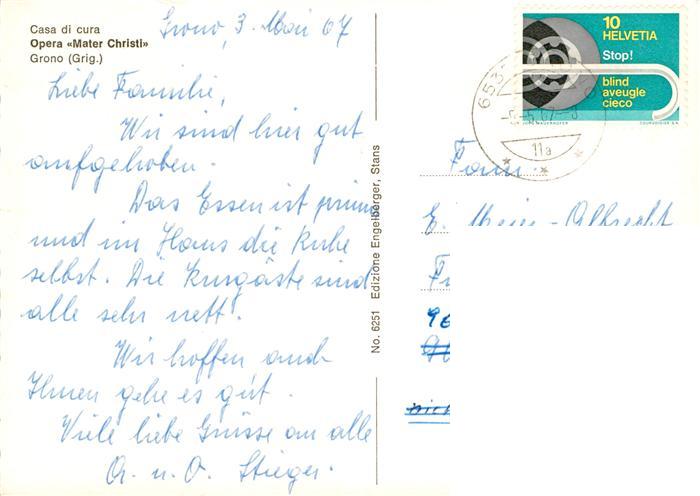 Casa di cura
Opera «Mater Christi»
Grono (Grig.)
Grono, 3. Mai 67
Liebe Familie,
Wir sind hier gut
aufgehoben.
Das Essen ist prima
und im Haus die Ruhe
selbst. Die Kurgäste sind
alle sehr nett!
Wir hoffen auch
Ihnen gehe es gut.
Viele liebe Grüsse an alle
A. u. O. Stieger.
No. 6251 Edizione Engelberger, Stans
10
HELVETIA
Stop!
blind
aveugle
cieco
COURVOISIER S.A.
653
11a
Fam.
E. Meier-Albrecht